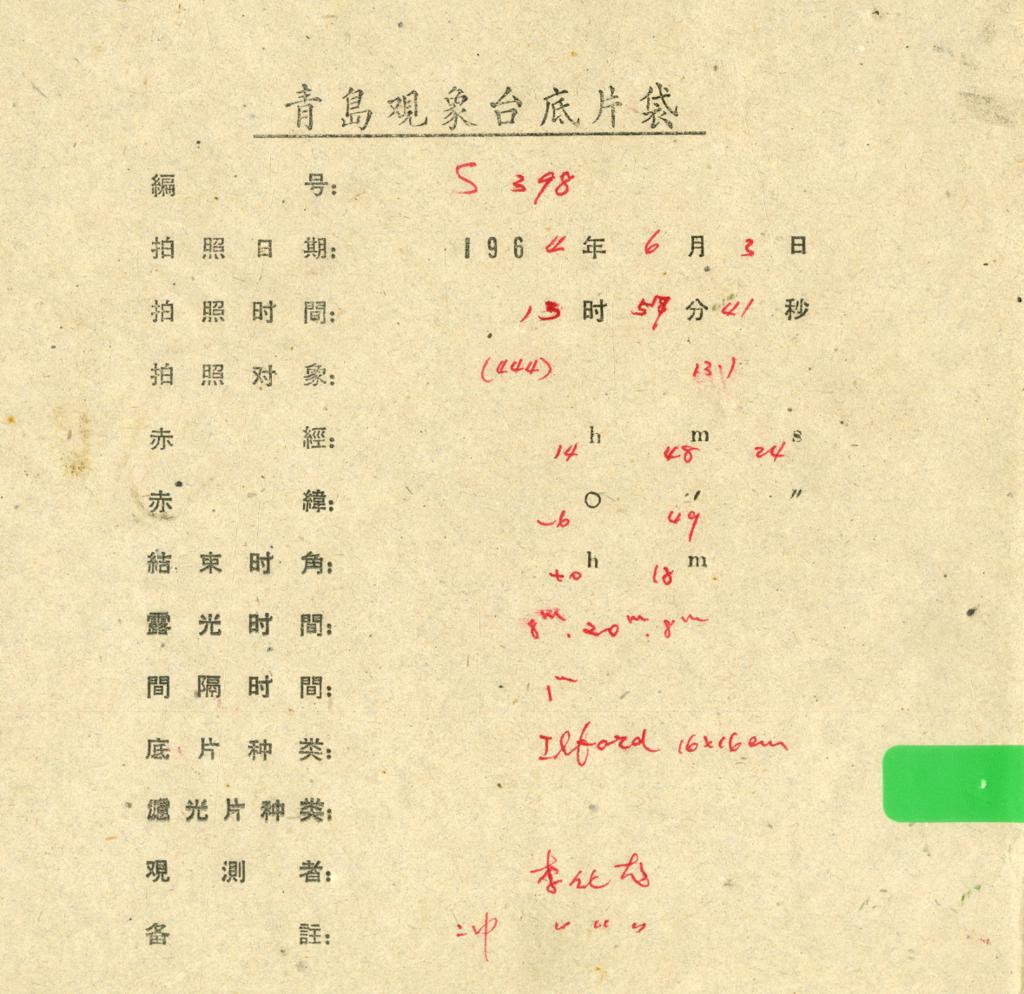 青島观象台底片袋
編号: S 398
拍照日期: 1964年6月3日
拍照时間: 13时57分41秒
拍照对象: (444) 13.1
赤經: 14h 48m 24s
赤緯: -6° 49′ ″
結束时角: +0h 18m
露光时間: 8m. 20m. 8m
間隔时間: 1m
底片种类: Ilford 16×16cm
濾光片种类:
观測者: 李
备註: 冲 〃 〃 〃